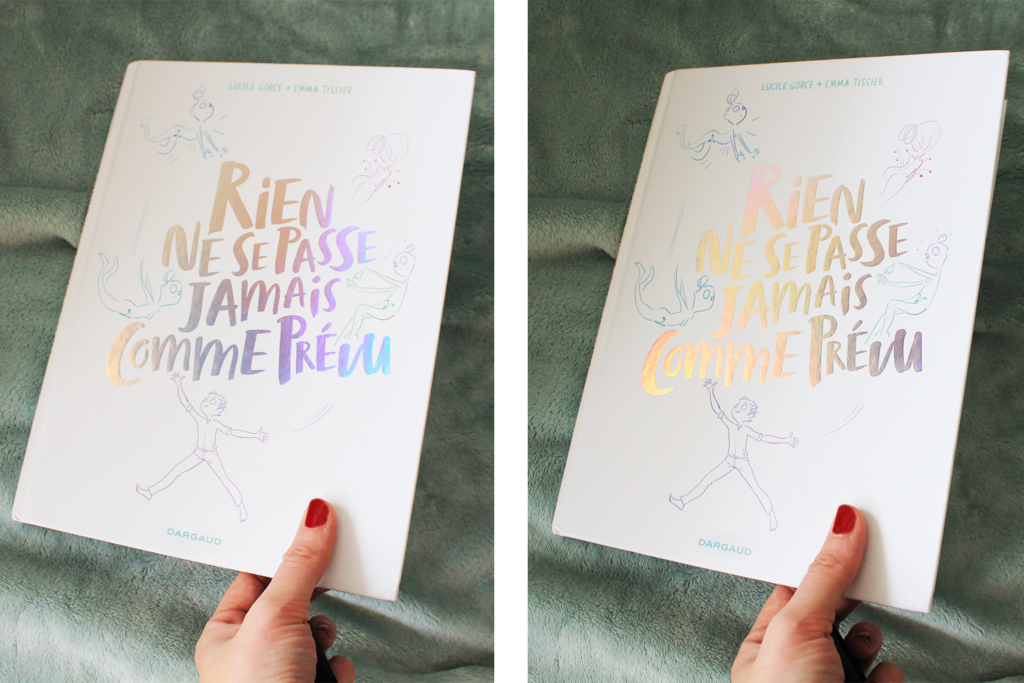 LUCILE GORCE + EMMA TISSIER
RIEN
NE SE PASSE
JAMAIS
COMME PRÉVU
DARGAUD
LUCILE GORCE + EMMA TISSIER
RIEN
NE SE PASSE
JAMAIS
COMME PRÉVU
DARGAUD